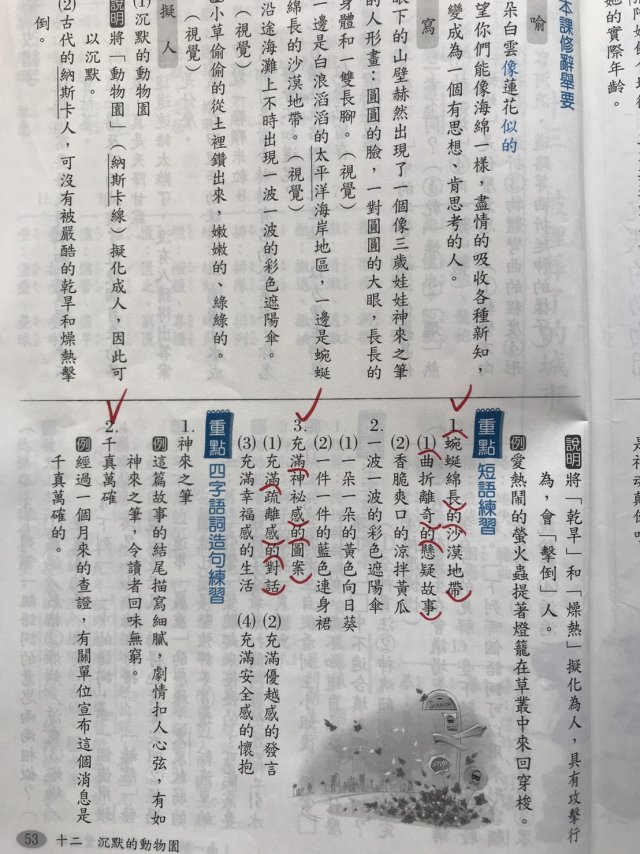 她的實際年齡。
本課修辭舉要
喻
朵白雲像蓮花似的
望你們能像海綿一樣，盡情的吸收各種新知，
變成為一個有思想、肯思考的人。
寫
眼下的山壁赫然出現了一個像三歲娃娃神來之筆
的人形畫：圓圓的臉，一對圓圓的大眼，長長的
身體和一雙長腳。（視覺）
一邊是白浪滔滔的太平洋海岸地區，一邊是蜿蜒
綿長的沙漠地帶。（視覺）
沿途海灘上不時出現一波一波的彩色遮陽傘。
（視覺）
小草偷偷的從土裡鑽出來，嫩嫩的、綠綠的。
（視覺）
擬人
(1)沉默的動物園
說明 將「動物園」（納斯卡線）擬化成人，因此可
以沉默。
(2)古代的納斯卡人，可沒有被嚴酷的乾旱和燥熱擊
倒。
說明 將「乾旱」和「燥熱」擬化為人，具有攻擊行
為，會「擊倒」人。
例 愛熱鬧的螢火蟲提著燈籠在草叢中來回穿梭。
重點 短語練習
1.蜿蜒綿長的沙漠地帶
(1)曲折離奇的懸疑故事
(2)香脆爽口的涼拌黃瓜
2.一波一波的彩色遮陽傘
(1)一朵一朵的黃色向日葵
(2)一件一件的藍色連身裙
3.充滿神祕感的圖案
(1)充滿疏離感的對話 (2)充滿優越感的發言
(3)充滿幸福感的生活 (4)充滿安全感的懷抱
重點 四字語詞造句練習
1.神來之筆
例 這篇故事的結尾描寫細膩，劇情扣人心弦，有如
神來之筆，令讀者回味無窮。
2.千真萬確
例 經過一個月來的查證，有關單位宣布這個消息是
千真萬確的。
STOP
53 十二 沉默的動物園